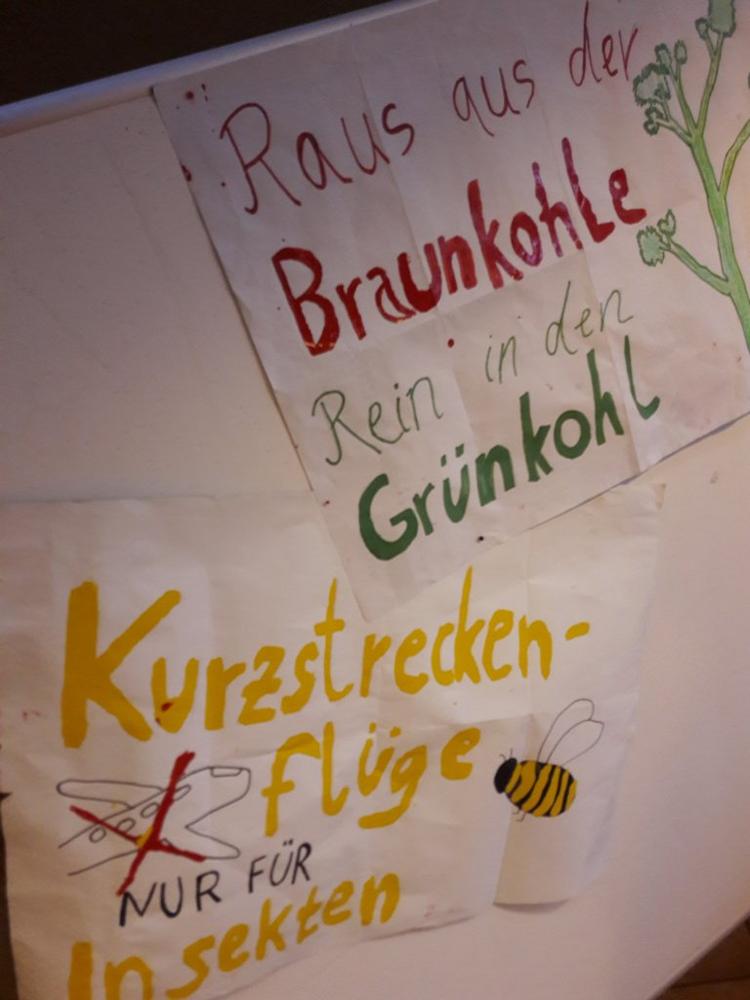 Raus aus der
Braunkohle
Rein in den
Grünkohl
Kurzstrecken-
flüge
NUR FÜR
Insekten